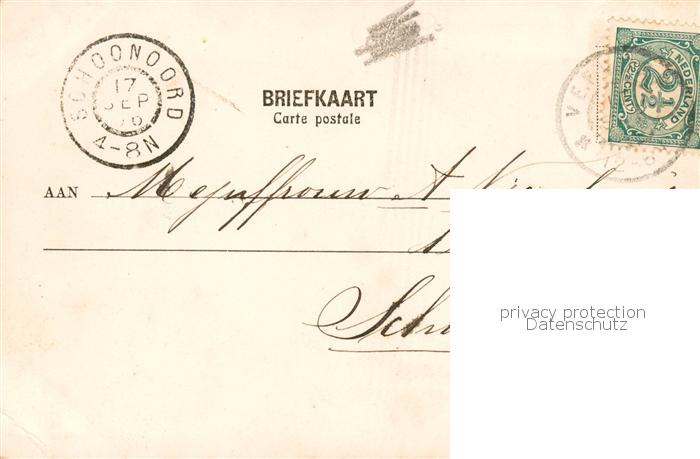 SCHOONOORD
17
SEP
4-8N
BRIEFKAART
Carte postale
NEDERLAND
2½
CENT
VE
12-
AAN Mejuffrouw A
Sch
privacy protection
Datenschutz